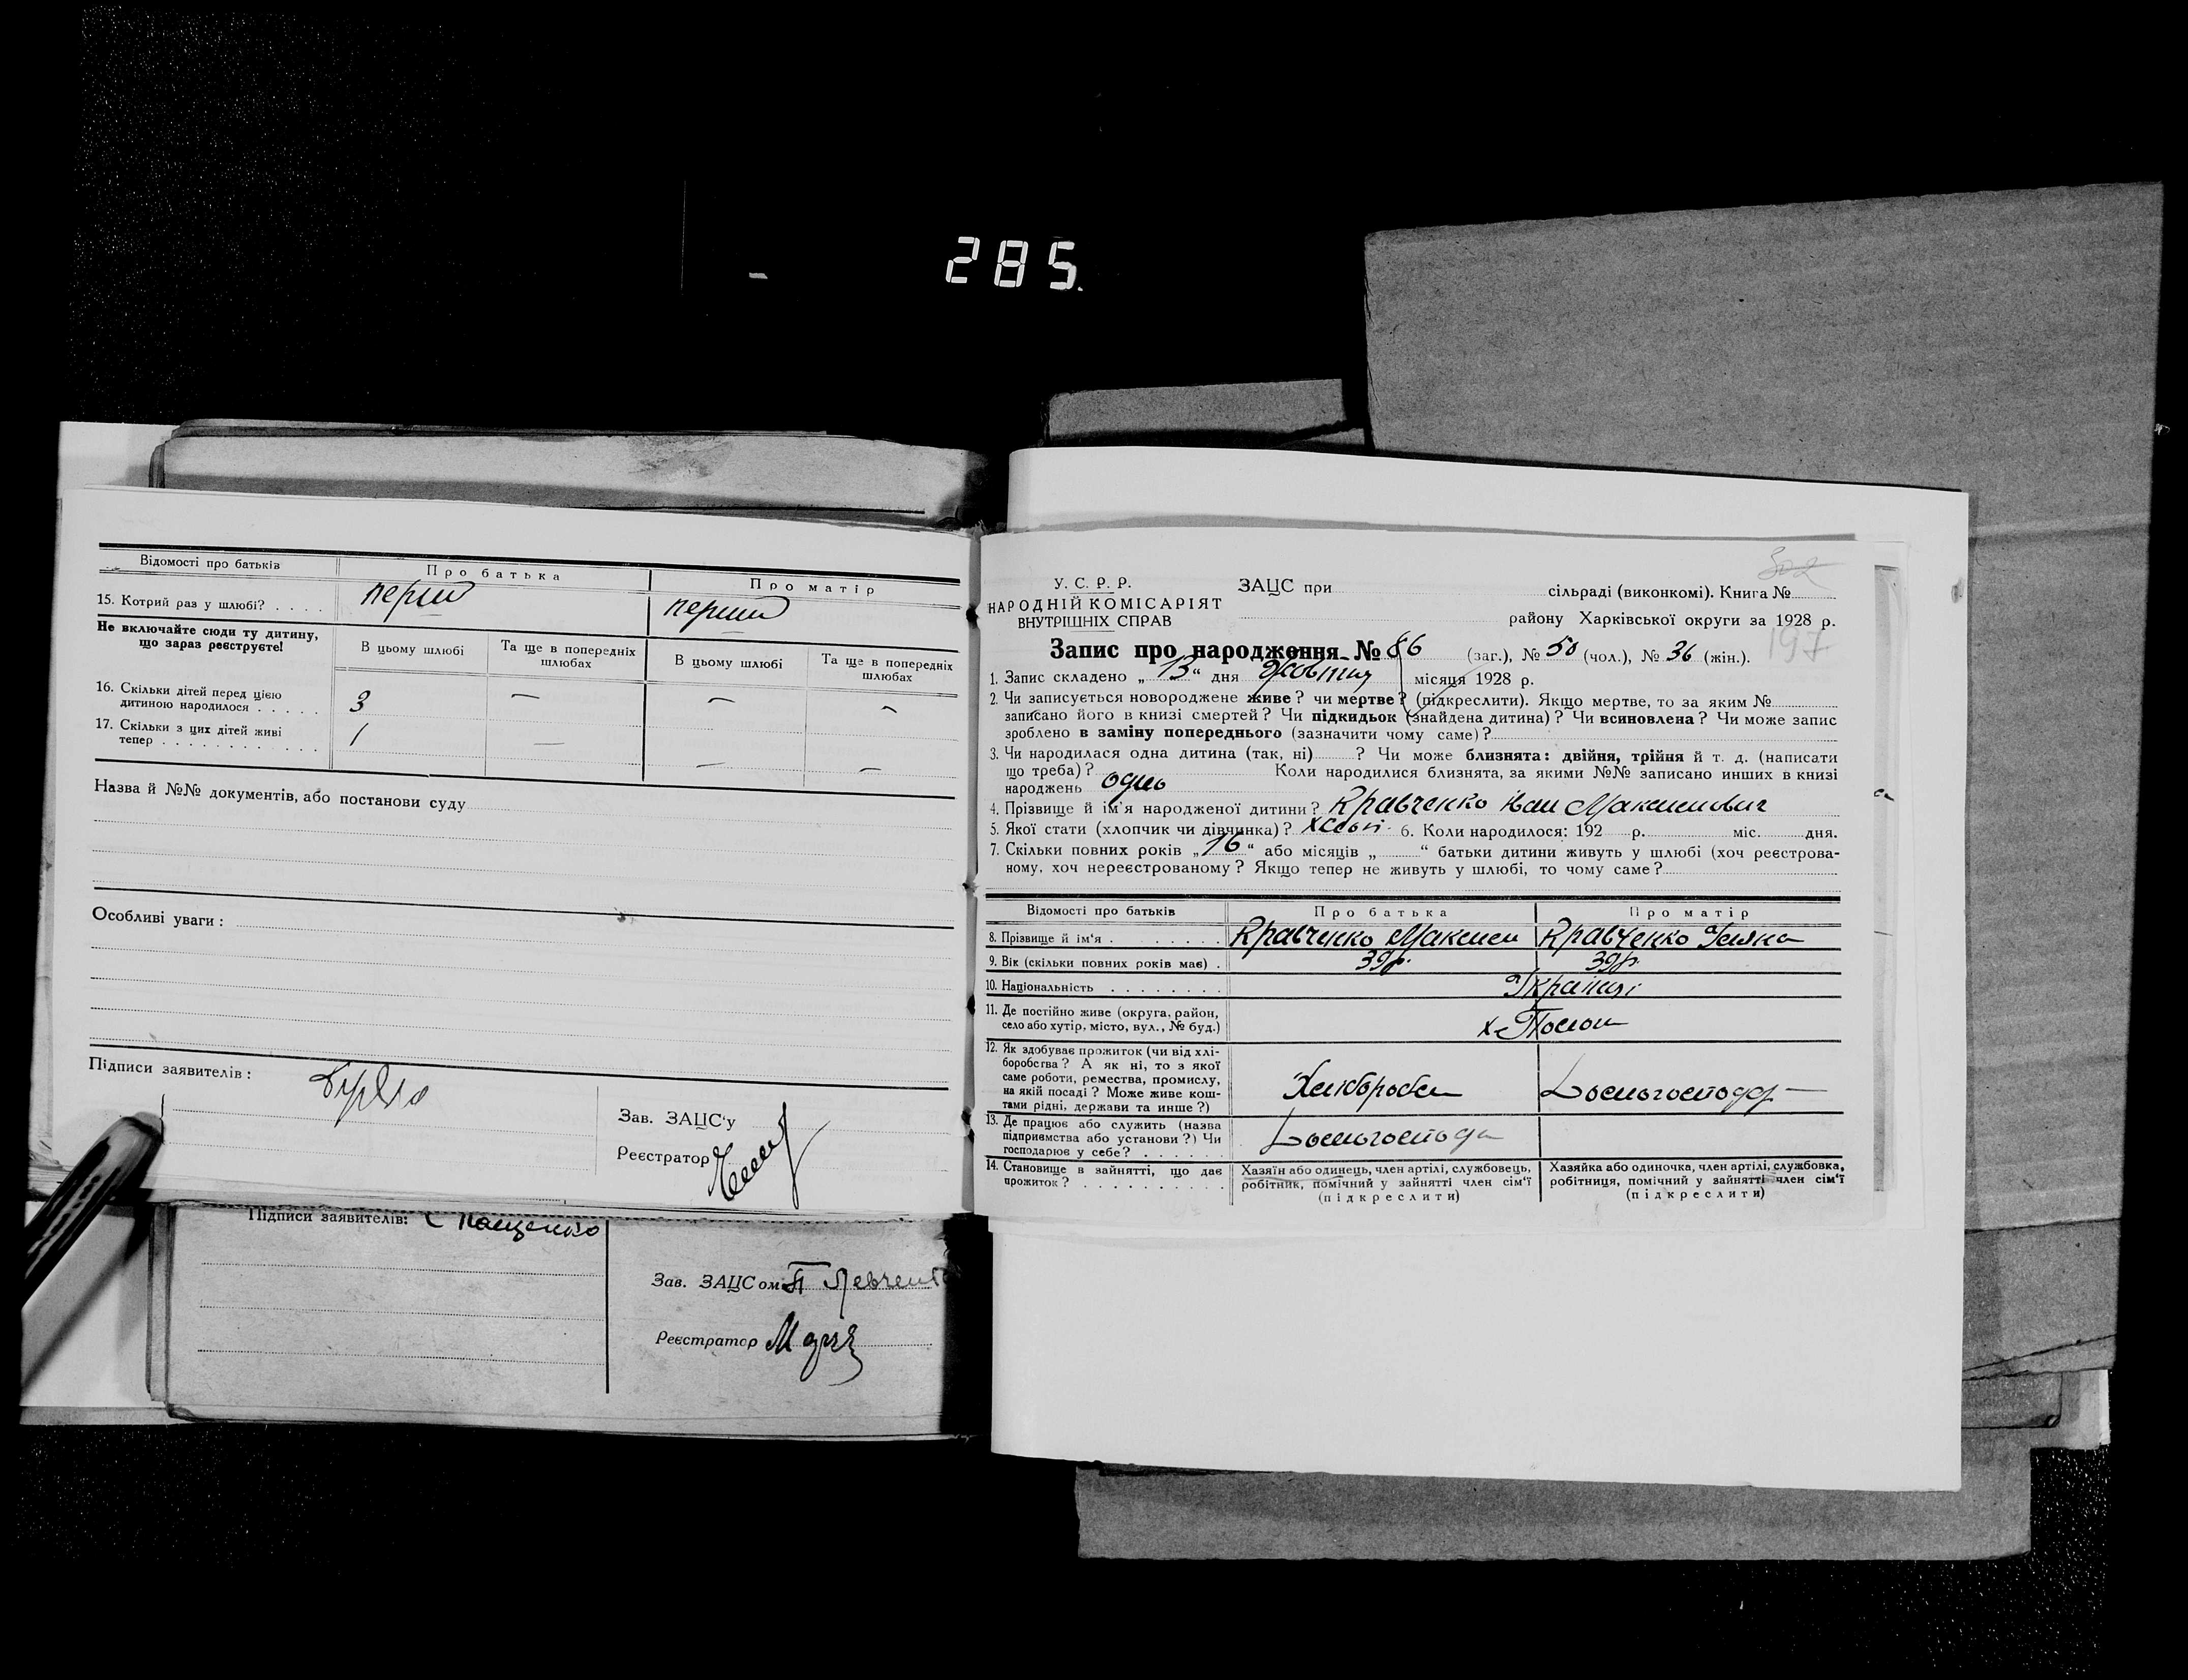 285.
Відомості про батьків
Про батька
Про матір
15. Котрий раз у шлюбі? . . . .
перший
перший
Не включайте сюди ту дитину,
що зараз реєструєте!
В цьому шлюбі
Та ще в попередніх
шлюбах
В цьому шлюбі
Та ще в попередніх
шлюбах
16. Скільки дітей перед цією
дитиною народилося . . . . .
3 — — —
17. Скільки з цих дітей живі
тепер . . . . . . . . . . . .
1 — — —
Назва й №№ документів, або постанови суду
Особливі уваги :
Підписи заявителів :
Зав. ЗАЦС'у
Реєстратор
Підписи заявителів: Пащенко
Зав. ЗАЦСом П Левченко
Реєстратор
302
У. С. Р. Р.
НАРОДНІЙ КОМІСАРІЯТ
ВНУТРІШНІХ СПРАВ
ЗАЦС при сільраді (виконкомі). Книга №
району Харківської округи за 1928 р.
197
Запис про народження № 86 (заг.), № 50 (чол.), № 36 (жін.).
1. Запис складено „ 13 “ дня Жовтня місяця 1928 р.
2. Чи записується новороджене живе? чи мертве? (підкреслити). Якщо мертве, то за яким №
записано його в книзі смертей? Чи підкидьок (знайдена дитина)? Чи всиновлена? Чи може запис
зроблено в заміну попереднього (зазначити чому саме)?
3. Чи народилася одна дитина (так, ні) ? Чи може близнята: двійня, трійня й т. д. (написати
що треба)? Коли народилися близнята, за якими №№ записано инших в книзі
народжень одно
4. Прізвище й ім'я народженої дитини? Кравченко Іван Максимович
5. Якої стати (хлопчик чи дівчинка)? 6. Коли народилося: 192 р. міс. дня.
7. Скільки повних років „ 16 “ або місяців „ “ батьки дитини живуть у шлюбі (хоч реєстрова-
ному, хоч нереєстрованому? Якщо тепер не живуть у шлюбі, то чому саме?
Відомості про батьків
Про батька
Про матір
8. Прізвище й ім'я . . . . . . . .
Кравченко Максим
Кравченко
9. Вік (скільки повних років має) .
39р.
39р.
10. Національність . . . . . . . .
11. Де постійно живе (округа, район,
село або хутір, місто, вул., № буд.)
12. Як здобуває прожиток (чи від хлі-
боробства? А як ні, то з якої
саме роботи, ремества, промислу,
на якій посаді? Може живе кош-
тами рідні, держави та инше?)
Хлібороби
Домогосподр
13. Де працює або служить (назва
підприємства або установи?) Чи
господарює у себе? . . . . . .
Домогоспода
14. Становище в зайнятті, що дає
прожиток? . . . . . . . . . .
Хазяїн або одинець, член артілі, службовець,
робітник, помічний у зайнятті член сім'ї
(підкреслити)
Хазяйка або одиночка, член артілі, службовка,
робітниця, помічний у зайнятті член сім'ї
(підкреслити)